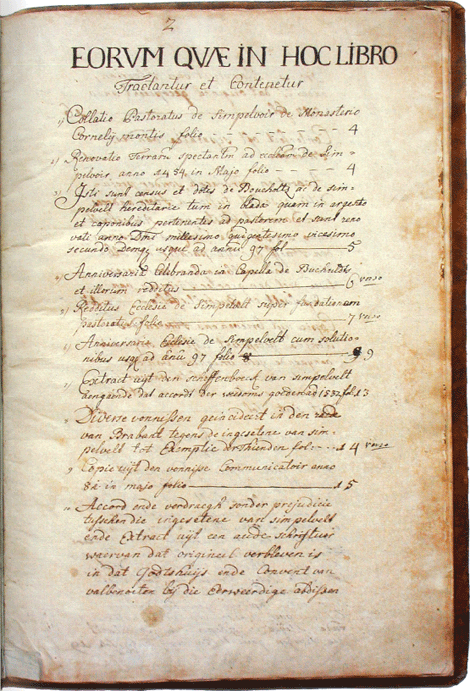 2
EORVM QVÆ IN HOC LIBRO
Tractantur et Contenetur
Collatio Pastoratus de Simpelvoir de Monasterio
Cornely montis folio - 4
Renovatio Terrarum spectantem ad eccliam de Sim-
pelvois, anno 1434, in Majo folio - - - - 4
Isti sunt census et dites de Boucholtz ac de sim-
pelvelt hereditarie tum in blada quam in argento
et caponibus pertinentes ad pastorem et sunt reno
vati anno Dni millesimo quigentesimo vicesimo
secundo Denuo usque ad annu 97 fol — 5
Anniversaria celebranda in Capella de Bucholtz
et illorum redditus — 6 verso
Redditus Ecclesie de Simpelvelt super fundationem
Pastoratus folio — 7 verso
Anniversarie Ecclesie de Simpelvelt cum solutio-
nibus usq ad annu 97 folio — 9
Extract uijt den scheffenboeck van simpelvelt
aengaende dat accordt der 1532 fol 13
Diverse vonnissen geincideert in den rade
van Brabant tegens de ingesetene van sim-
pelvelt tot Exemptie der Thienden fol - - 14 verso
9 Copie uijt den vonnisse Communicatoir anno
82 in majo folio — 15
Accord ende verdraegh sonder prejudicie
tusschen die ingesetene van simpelvelt
ende Extract uijt een oude schriftuer
waervan dat origineel verbleven is
in dat Godtshuijs ende Convent van
valbenoiten bij die eerweerdige abdissen